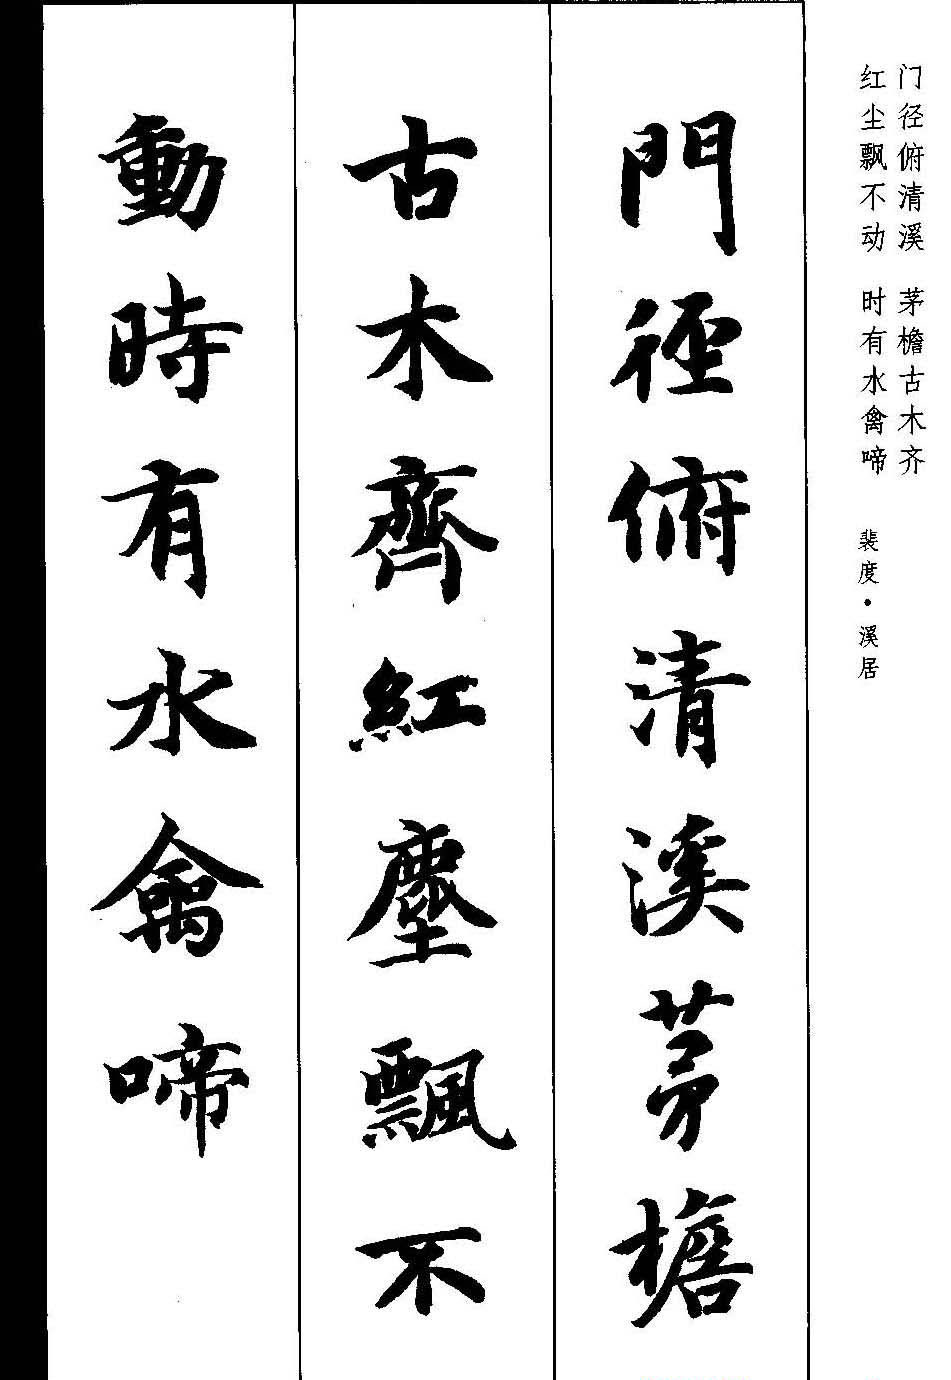 门径俯清溪 茅檐古木齐
红尘飘不动 时有水禽啼 裴度·溪居
門徑俯清溪茅檐
古木齊紅塵飄不
動時有水禽啼